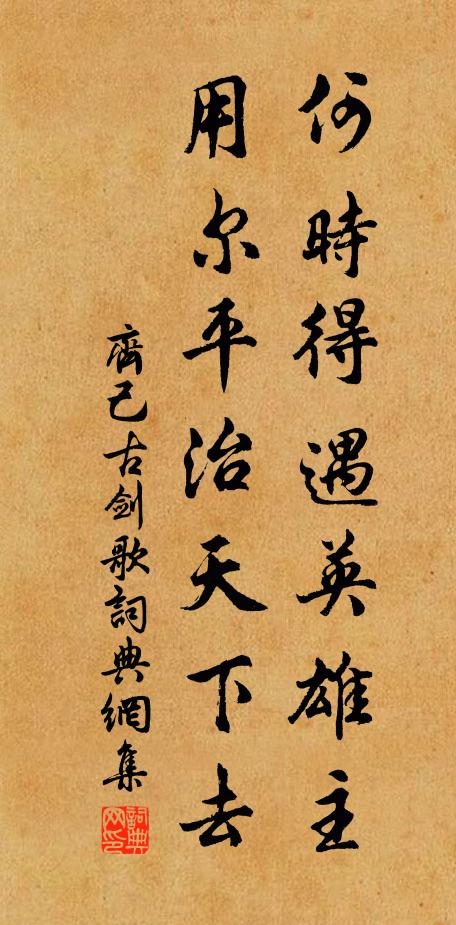 何時得遇英雄主
用尔平治天下去
齊己古劍歌詞典網集
詞典网印